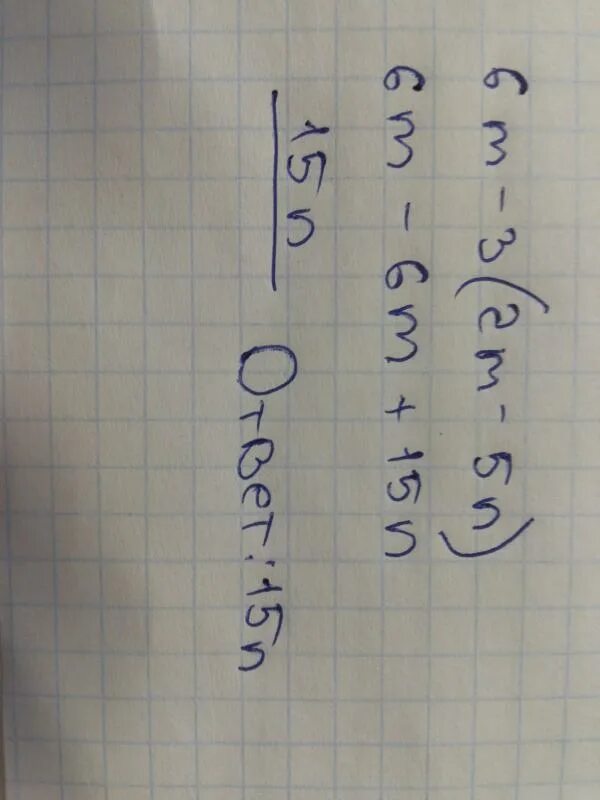 6m - 3(2m - 5n)
6m - 6m + 15n
15n
Ответ: 15n